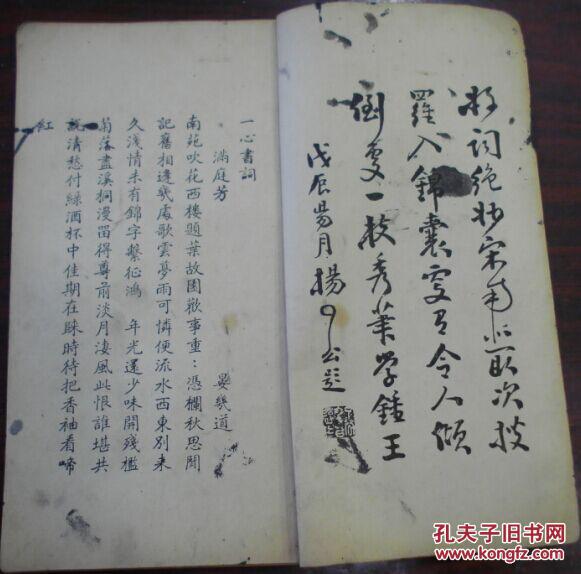 好詞絕妙宋南次披
羅入錦囊更有令人傾
倒處一枝秀筆學鍾王
戊辰暢月揚公題
一心書詞
滿庭芳 晏幾道
南苑吹花西樓題葉故園歡事重：憑欄秋思閒
記舊相逢幾處歌雲夢雨可憐便流水西東別來
久淺情未有錦字繫征鴻 年光還少味開殘檻
菊落盡溪桐漫留得尊前淡月淒風此恨誰堪共
說清愁付綠酒杯中佳期在歸時待把香袖看啼
紅
孔夫子旧书网
www.kongfz.com